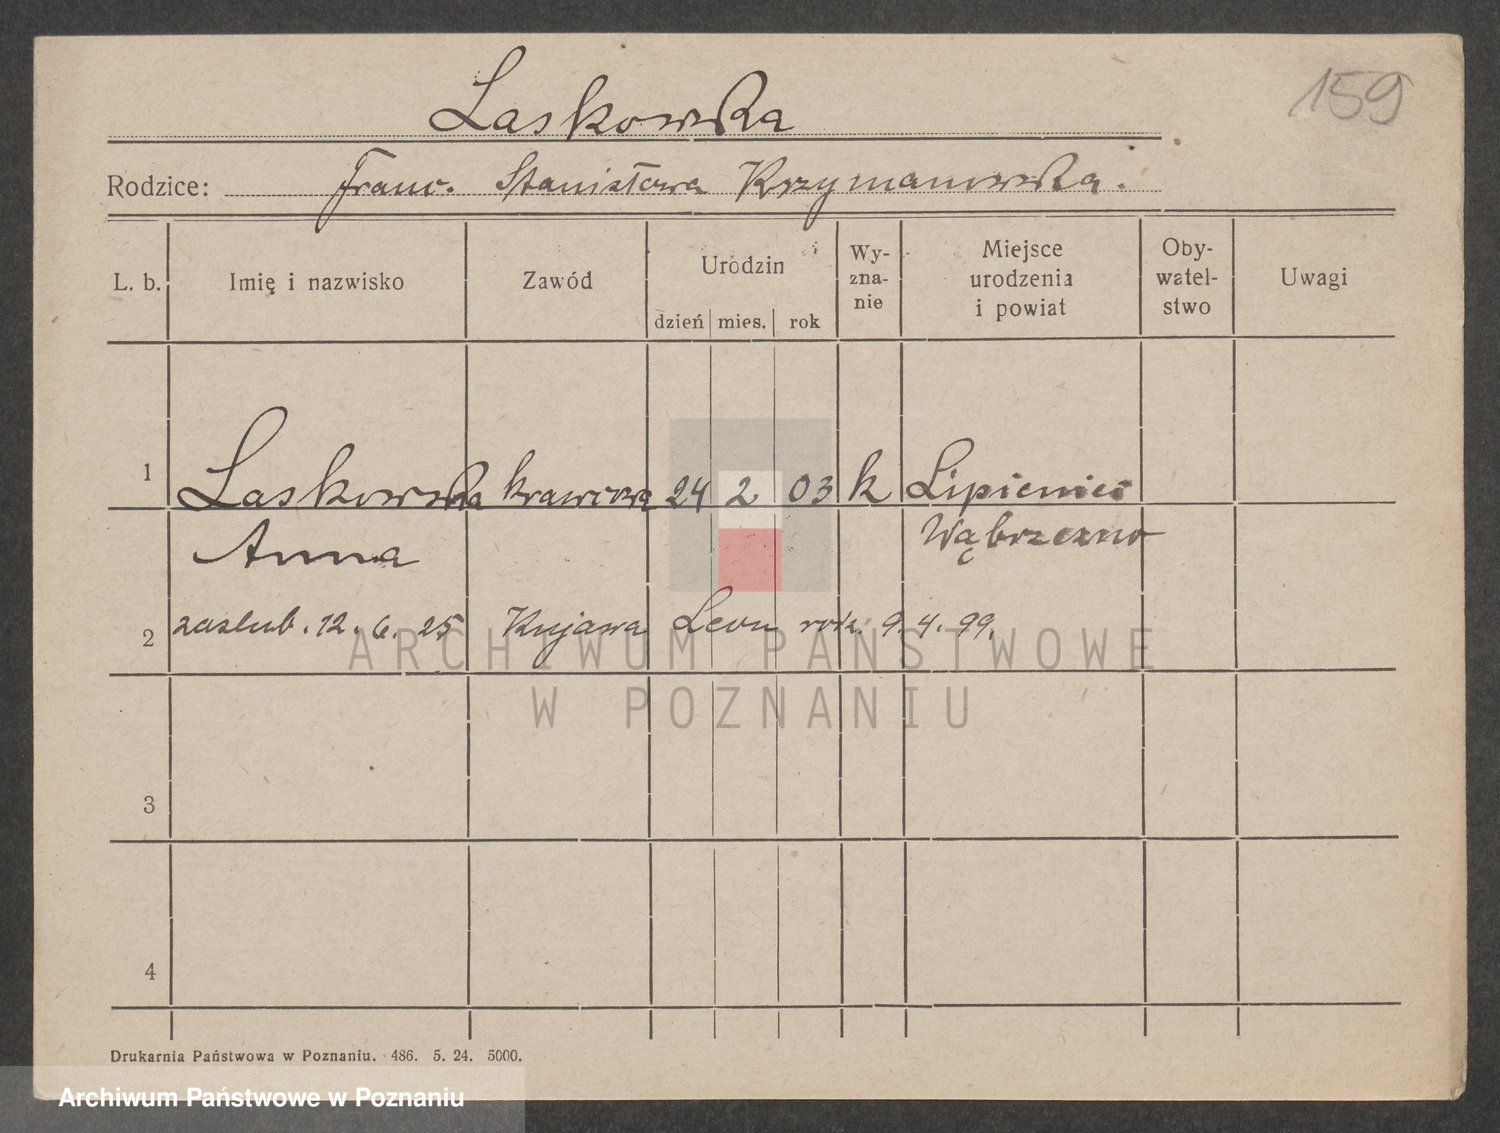 159
Laskowska
Rodzice: Franc. Stanisława Krzymanowska.
L. b. Imię i nazwisko Zawód Urodzin dzień mies. rok Wy-zna-nie Miejsce urodzenia i powiat Oby-watel-stwo Uwagi
1 Laskowska krawcowa 24 2 03 k Lipienica
Anna Wąbrzezno
2 zaslub. 12. 6. 25 Kujawa Leon rok. 9. 4. 99.
ARCHIWUM PAŃSTWOWE
W POZNANIU
3
4
Drukarnia Państwowa w Poznaniu. 486. 5. 24. 5000.
Archiwum Państwowe w Poznaniu